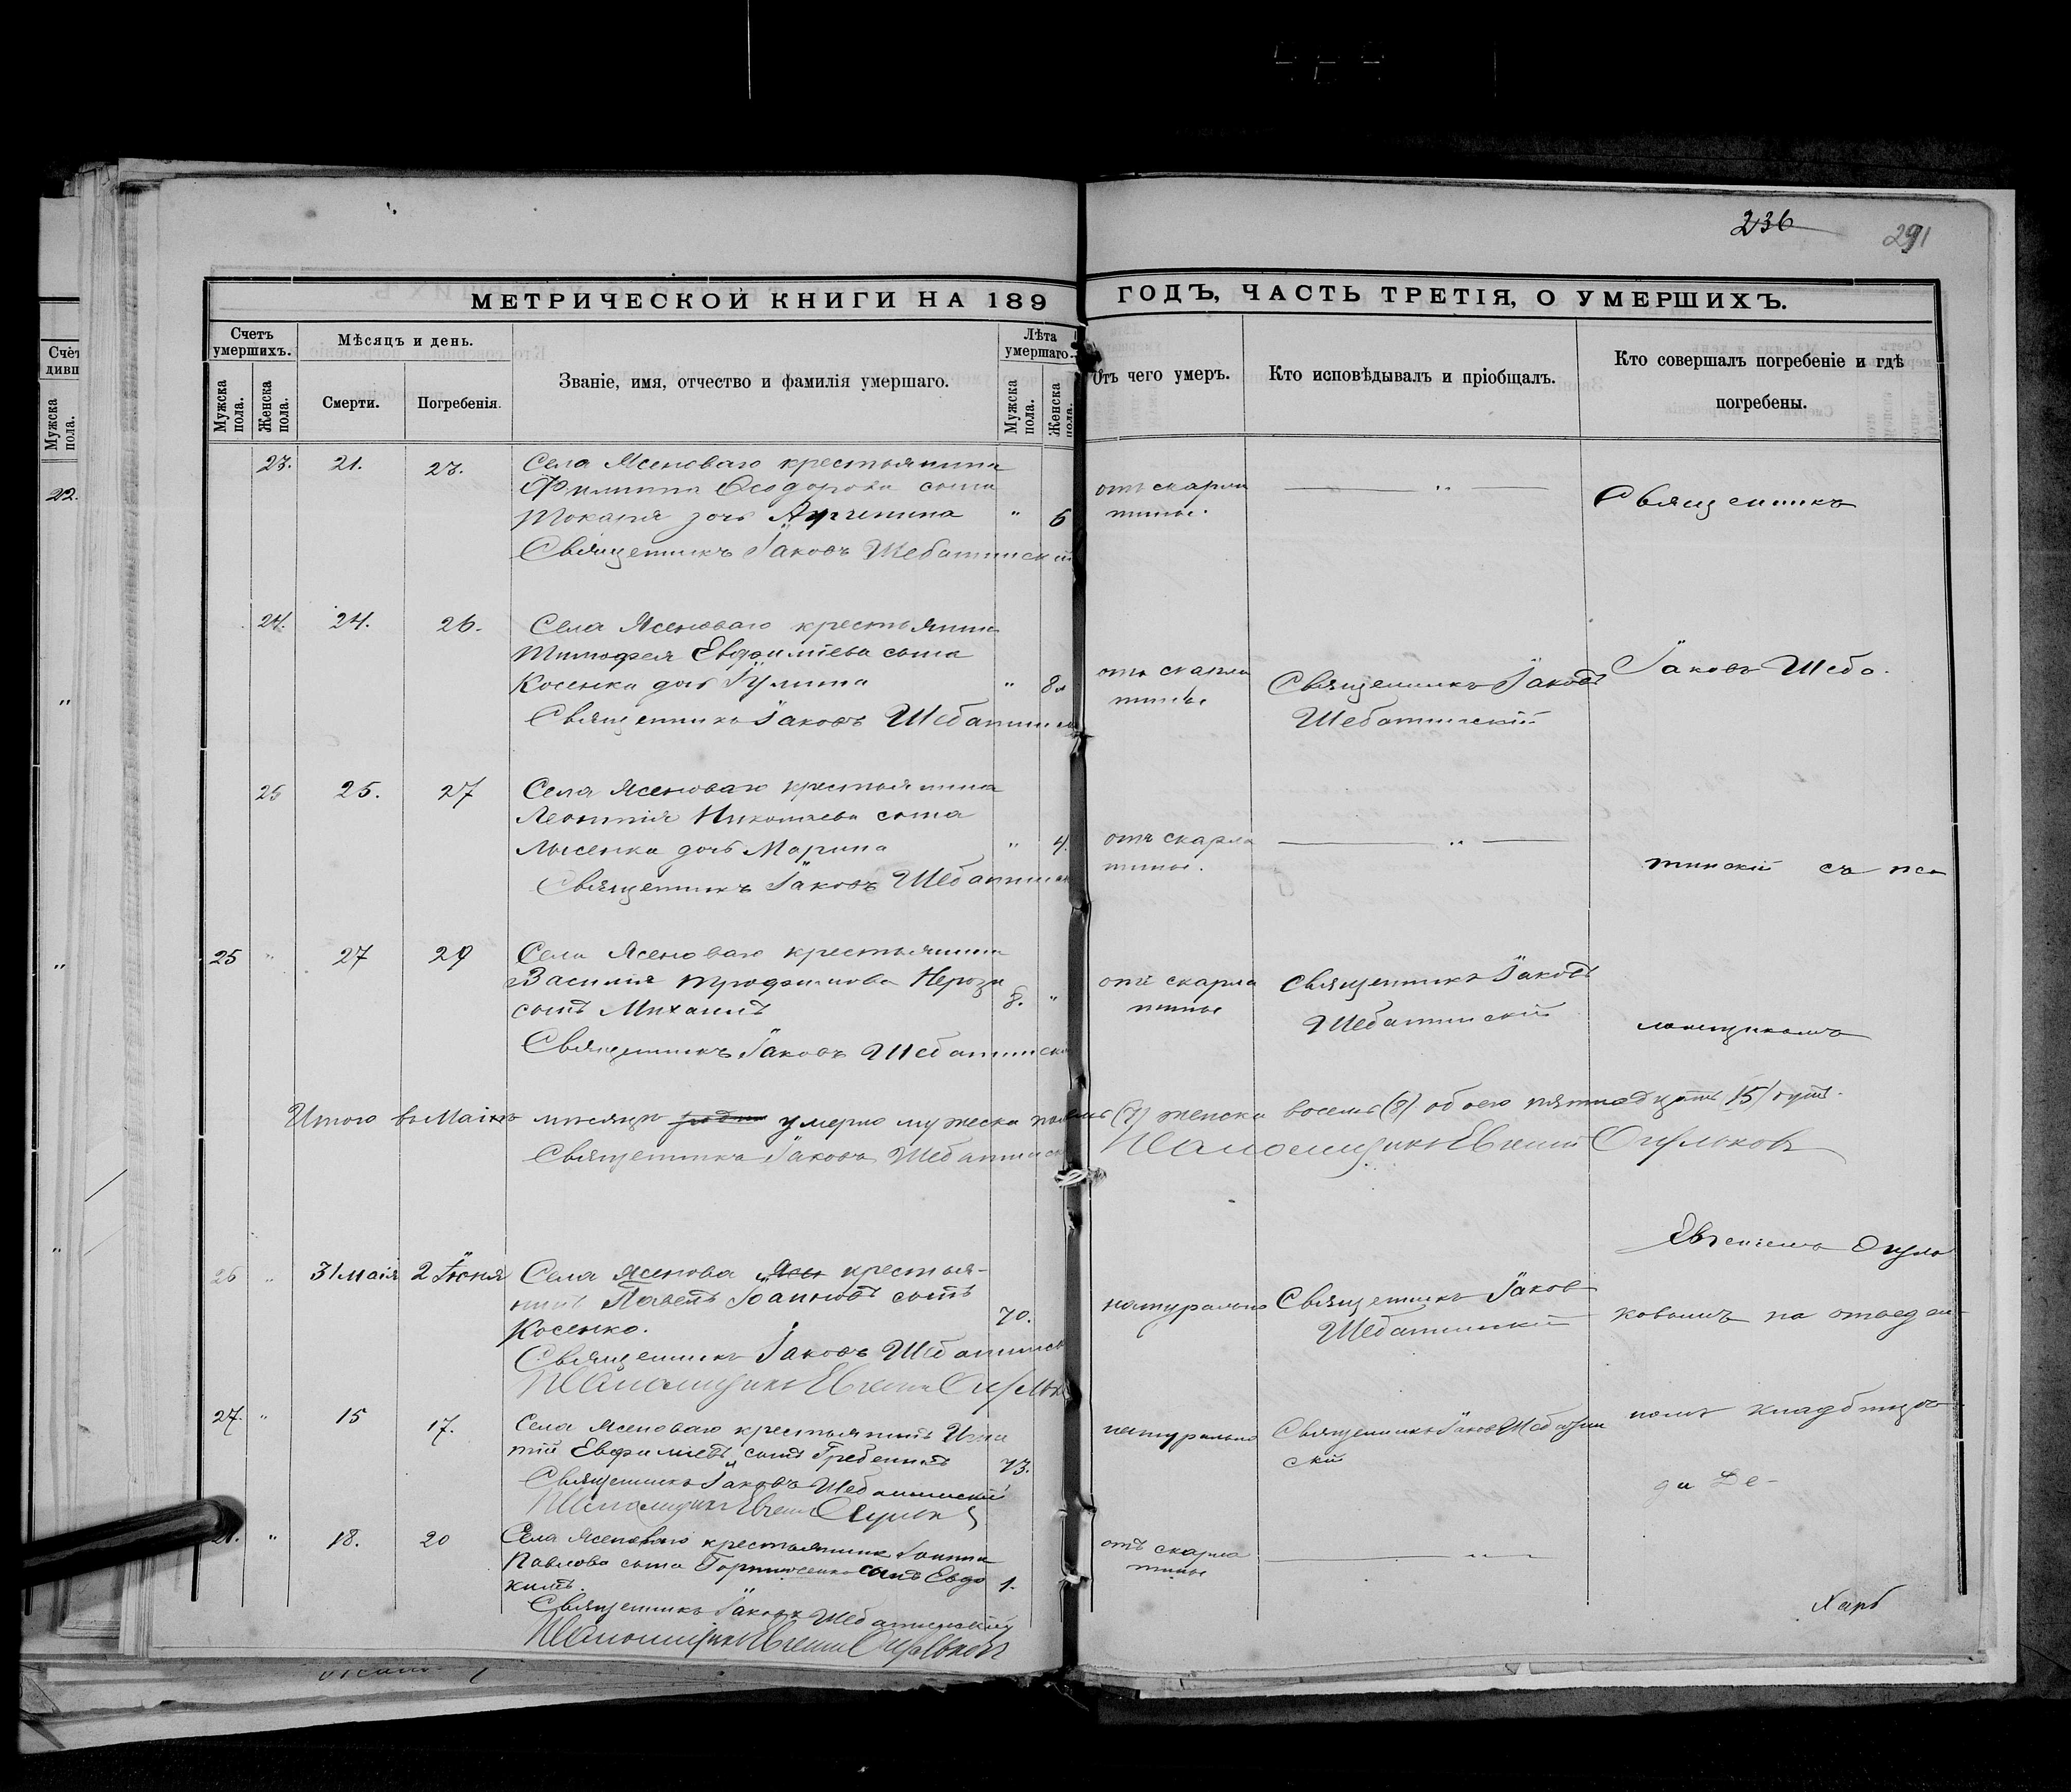 236
291
МЕТРИЧЕСКОЙ КНИГИ НА 189 ГОДЪ, ЧАСТЬ ТРЕТІЯ, О УМЕРШИХЪ.
Счетъ умершихъ.
Мѣсяцъ и день.
Званіе, имя, отчество и фамилія умершаго.
Лѣта умершаго.
Отъ чего умеръ.
Кто исповѣдывалъ и пріобщалъ.
Кто совершалъ погребеніе и гдѣ погребены.
Мужска пола.
Женска пола.
Смерти.
Погребенія.
Мужска пола.
Женска пола.
23. 21. 23. Села Ясеноваго крестьянина
Филиппа Ѳеодорова сына
Токаря дочь " 6
отъ скарла
тины.
Священникъ Іаковъ Шебатинскій
Священникъ
24. 24. 26. Села Ясеноваго крестьянина
Тимофея Евфиміева сына
Косенка дочь Іулита " 8
отъ скарла
тины
Священникъ Іаковъ
Шебатинскій
Священникъ Іаковъ Шебатинск
Іаковъ Шеба
25 25. 27 Села Ясеноваго крестьянина
Леонтія Николаева сына
Лысенка дочь Марина " 4.
отъ скарла
тины.
Священникъ Іаковъ Шебатинск
тинскій съ пса
25 " 27 29 Села Ясеноваго крестьянина
Василія Трофимова
сынъ Михаилъ 8. "
отъ скарла
тины
Священникъ Іаковъ
Шебатинскій
Священникъ Іаковъ Шебатинск
ломщикомъ
Итого въ Маіѣ мѣсяцѣ умерло мужеска (7) женска восемь (8) обоего пятнадцать 15 душъ.
Священникъ Іаковъ Шебатинск
Псаломщикъ Евгеній Огульковъ
26 " 31 Маія 2 Іюня Села Ясенова крестья-
нинъ Павелъ Іоанновъ сынъ
Косенко. 70.
натурально
Священникъ Іаковъ
Шебатинскій
Священникъ Іаковъ Шебатинск
Псаломщикъ Евгеній Огульк
Евгеніемъ Огуль
ковымъ на отведен
номъ кладбищѣ
27. " 15 17. Села Ясеноваго крестьянинъ Игна
тій Евфиміевъ сынъ Гребенникъ 73.
натурально
Священникъ Іаковъ Шебатин
скій
Священникъ Іаковъ Шебатинскій
Псаломщикъ Евгеній Огульк
" 18. 20 Села Ясеноваго крестьянина Іоанна
Павлова сына сынъ Евдо
кимъ. 1.
отъ скарла
тины
Священникъ Іаковъ Шебатинскій
Псаломщикъ Евгеній Огульковъ
Счет
дивш
Мужска
пола.
22.